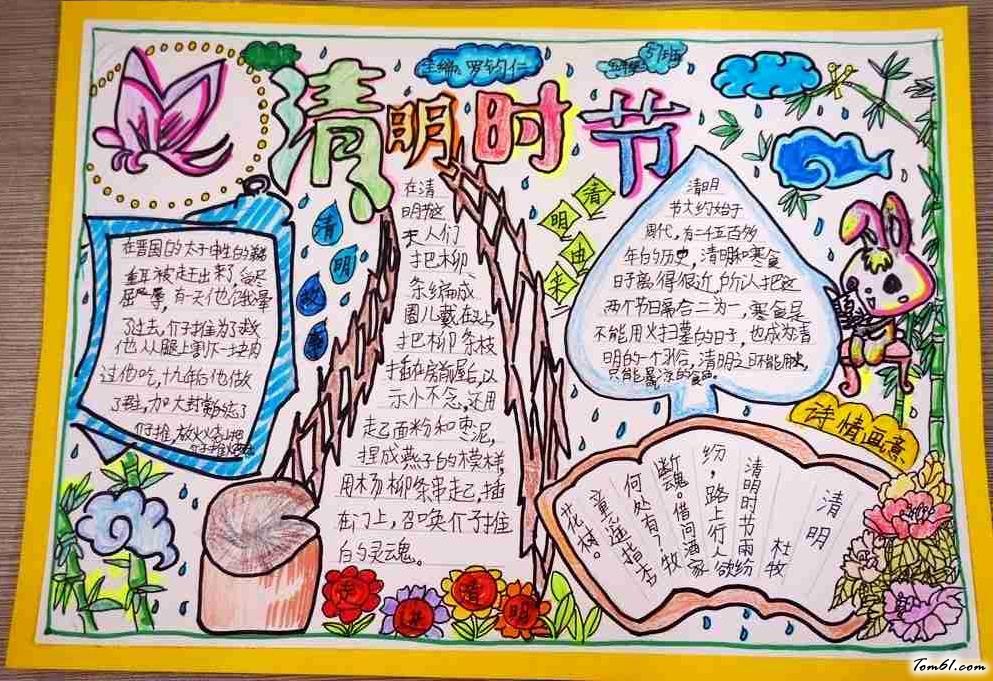 主编:罗钧仁
571班
清明时节
清明
由来
清明
故事
在晋国的太子申生的
重耳被
有一天他饿晕
了过去,介子推为了救
他从腿上割下一块肉
过他吃,十九年后他做
了
介子推,放火烧山把
在清
明节这
天人们
把柳
条编成
圈儿戴在头上
把柳条枝
插在房前屋后,以
示小不念,还用
起面粉和枣泥,
捏成燕子的模样,
用杨柳条串起,插
在门上,召唤介子推
的灵魂。
清明
节大约始于
周代,有二千五百多
年的历史,清明和寒食
日子离得很近,所以把这
两个节日合二为一,寒食是
不能用火扫墓的日子,也成为清
明的一个习俗,清明
只能
诗情画意
清明
杜牧
清明时节雨纷
纷,路上行人欲
断魂。借问酒家
何处有?牧
童遥指杏
花村。
走
进
清
明
Tom61.com